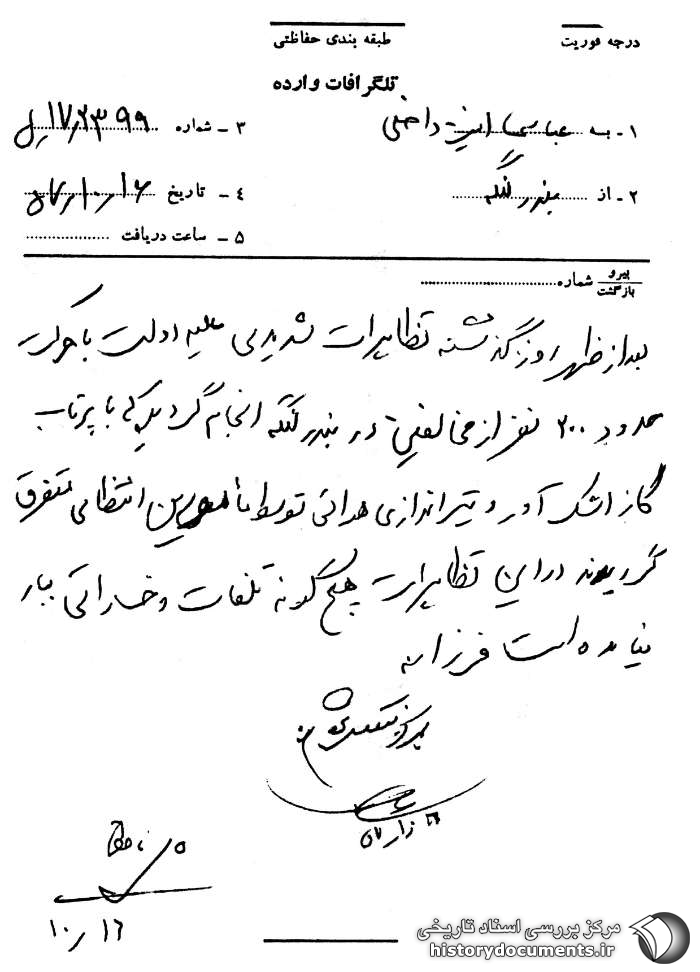 درجه فوریت
طبقه بندی حفاظتی
تلگرافات وارده
۱ - به عباسی امنیت داخلی
۳ - شماره ۱۷٫۲۳۹۹
۲ - از بندر لنگه
۴ - تاریخ ۵۷٫۱۰٫۱۶
۵ - ساعت دریافت
پیرو
بازگشت
شماره
بعد از ظهر روز گذشته تظاهرات شدیدی علیه دولت با شرکت
حدود ۲۰۰ نفر از مخالفین در بندر لنگه انجام گردید که با پرتاب
گاز اشک آور و تیراندازی هوائی توسط مأمورین انتظامی متفرق
گردیدند در این تظاهرات هیچگونه تلفات و خساراتی ببار
نیامده است فرزانه
۱۶
۱۰٫۱۶
مرکز بررسی اسناد تاریخی
historydocuments.ir